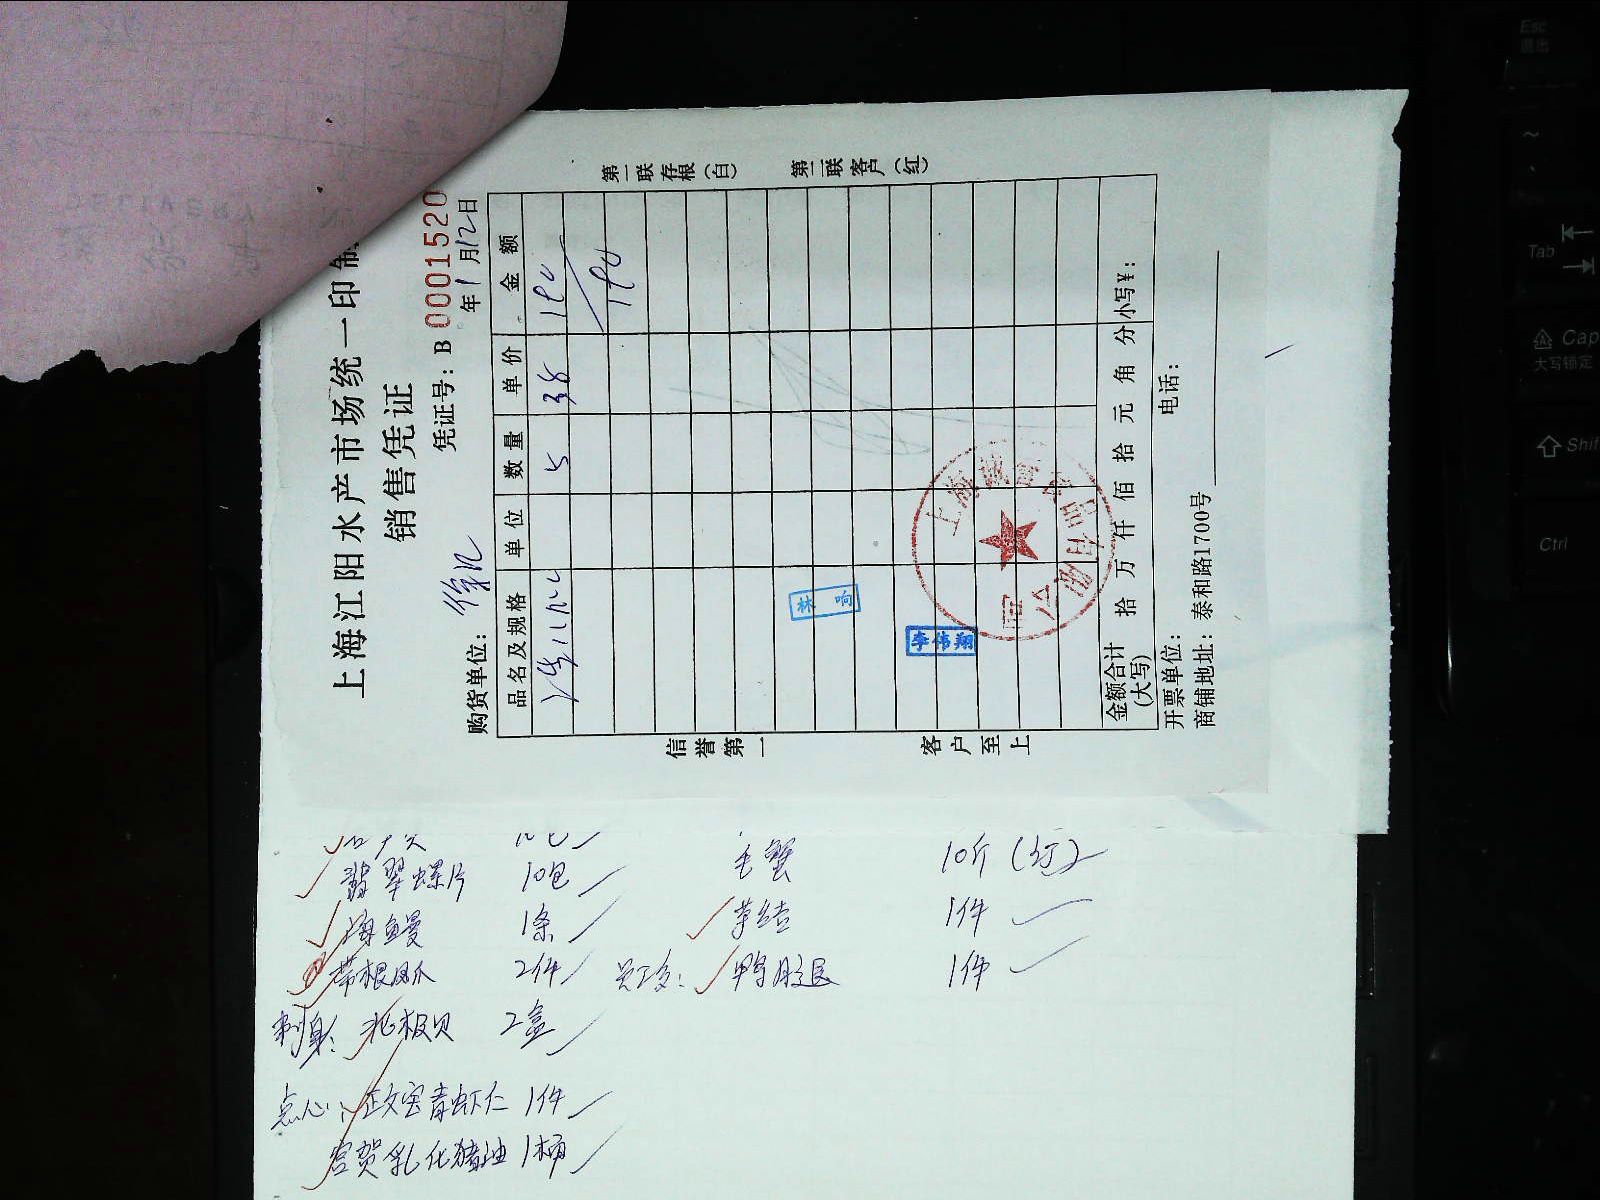 上海江阳水产市场统一印制
销售凭证
凭证号: B 0001520
购货单位: 徐汇
年1月12日
品名及规格 单位 数量 单价 金额
5 38 190
190
金额合计(大写) 拾 万 仟 佰 拾 元 角 分 小写¥:
开票单位: 电话:
商铺地址: 泰和路1700号
第一联存根(白) 第二联客户(红)
信誉第一 客户至上
林响
李伟翔
上海
有限公司
翡翠螺片 10包
毛蟹 10斤
海鳗 1条
草结 1件
带根凤爪 2件
1件
刺身: 北极贝 2盒
点心: 青虾仁 1件
宫贺乳化猪油 1桶
DELIVERY
Esc 退出
~
Tab
Cap 大写锁定
Shif
Ctrl